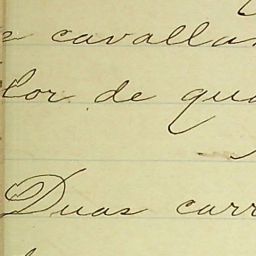 cavalla
lor de qua
Duas carr